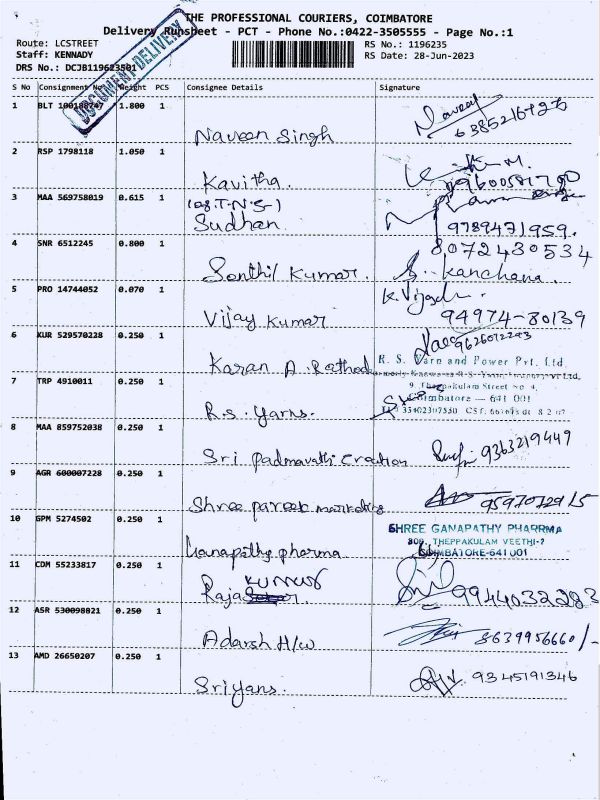 THE PROFESSIONAL COURIERS, COIMBATORE
Delivery Runsheet - PCT - Phone No.:0422-3505555 - Page No.:1
Route: LCSTREET
RS No.: 1196235
Staff: KENNADY
RS Date: 28-Jun-2023
DRS No.: DCJB119623501
DOCUMENT DELIVERY
S No Consignment No Weight PCS Consignee Details Signature
1 BLT 100188747 1.800 1
Naveen Singh
2 RSP 1798118 1.050 1
Kavitha.
3 MAA 569758019 0.615 1
Sudhan
9789471959.
8072430534
4 SNR 6512245 0.800 1
Senthil Kumar. S. Kanchana.
5 PRO 14744052 0.070 1
K. Vijay
Vijay Kumar 94974-80139
6 KUR 529570228 0.250 1
9626012243
Karan A. Rathod
R. S. Yarn and Power Pvt. Ltd.
7 TRP 4910011 0.250 1
9, Theppakulam Street No 4,
Coimbatore - 641 001
R.S. Yarns.
8 MAA 859752038 0.250 1
Sri Padmavathi Creation 9363219449
9 AGR 600007228 0.250 1
Shree pareek marketing 9597072915
10 GPM 5274502 0.250 1
SHREE GANAPATHY PHARRMA
THEPPAKULAM VEETHI-2
COIMBATORE-641 001
Ganapathy pharma
11 CDM 55233817 0.250 1
Raja Kumar 9944032283
12 ASR 530098821 0.250 1
Adarsh H/w 8639956660/-
13 AMD 26650207 0.250 1
Sriyans. 9345191346